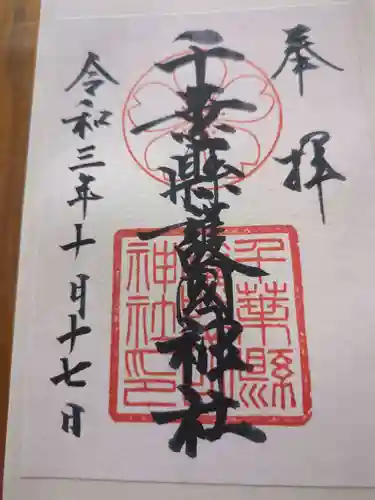 奉拝
千葉縣護國神社
令和三年十月十七日
千葉縣
護國神
神社印